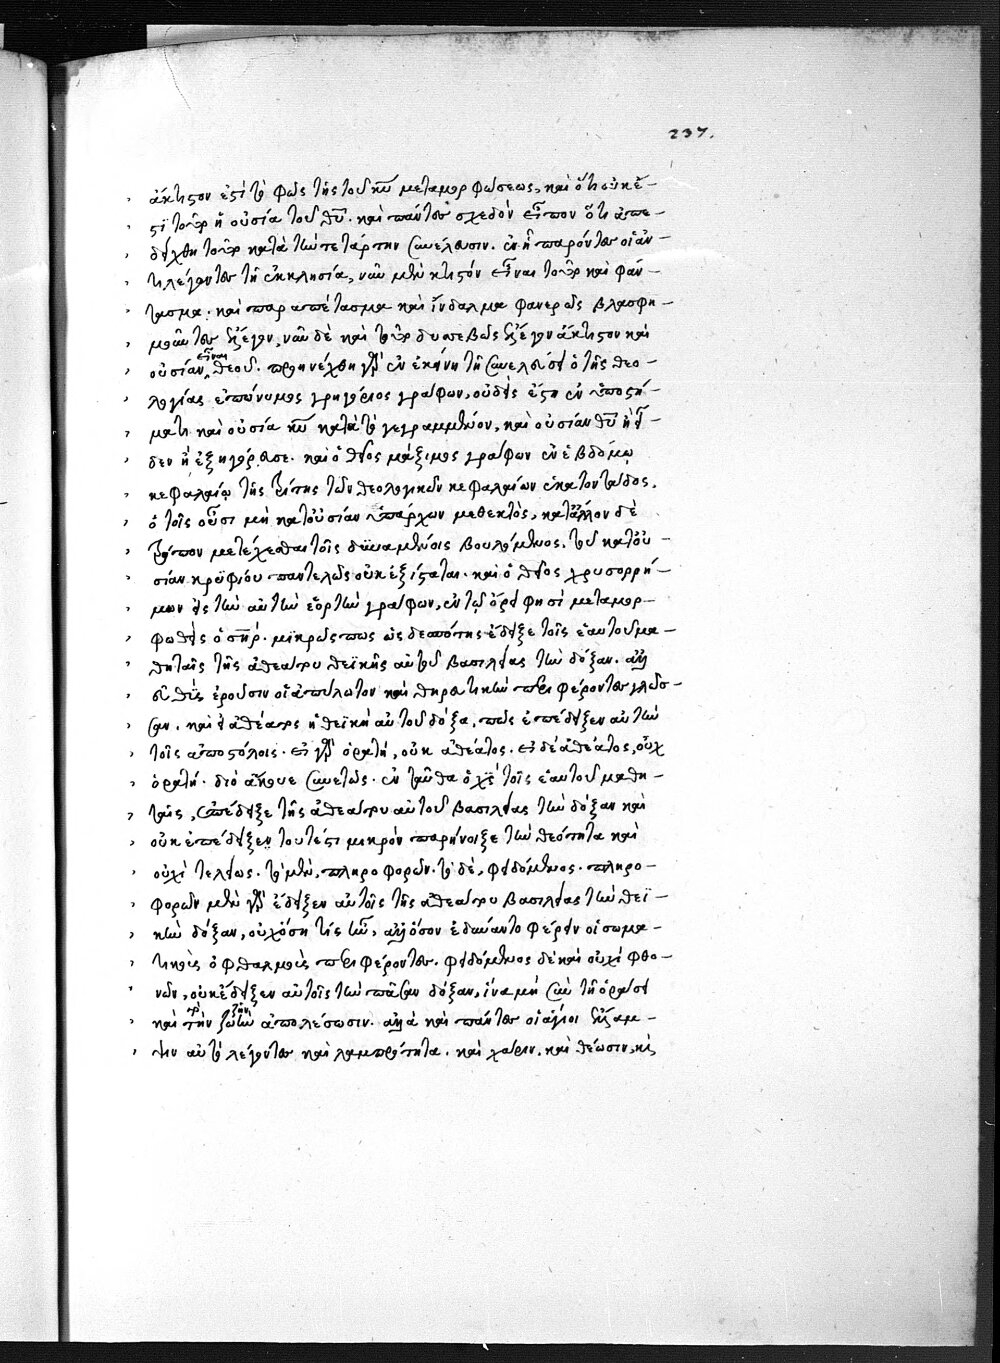 237.
ἄκτιστον ἐστὶ τὸ φῶς τῆς τοῦ κυ μεταμορφώσεως, καὶ ὅτι οὐκ ἔ-
στι τοῦτο ἡ οὐσία τοῦ θυ. καὶ πάντες σχεδὸν εἶπον ὅτι ἀπε-
δείχθη τοῦτο κατὰ τὴν τετάρτην συνέλευσιν. ἐν ᾗ παρόντες οἱ ἀν-
τιλέγοντες τῇ ἐκκλησία, νῦν μὲν κτιστόν εἶναι τοῦτο καὶ φάν-
τασμα. καὶ παραπέτασμα καὶ ἴνδαλμα φανερῶς βλασφη-
μοῦντες ἔλεγον, νῦν δὲ καὶ τοῦτο δυσσεβῶς ἔλεγον ἄκτιστον καὶ
οὐσίαν εἶναι θεοῦ. προηνέχθη γὰρ ἐν ἐκείνη τῇ συνελεύσει ὁ τῆς θεο-
λογίας ἐπώνυμος γρηγόριος γράφων, οὐδεὶς ἔστη ἐν ὑποστή-
ματι καὶ οὐσία κυ κατὰ τὸ γεγραμμένον, καὶ οὐσίαν θυ ἢ εἶ-
δεν ἢ ἐξηγόρευσε. καὶ ὁ θεῖος μάξιμος γράφων ἐν ἑβδόμῳ
κεφαλαίῳ τῆς τρίτης τῶν θεολογικῶν κεφαλαίων ἑκατοντάδος.
ὁ τοῖς οὖσι μὴ κατ οὐσίαν ὑπάρχων μεθεκτὸς, κατ ἄλλον δὲ
τρόπον μετέχεσθαι τοῖς δυναμένοις βουλόμενος, τοῦ κατ οὐ-
σίαν κρυφίου παντελῶς οὐκ ἐξίσταται. καὶ ὁ θεῖος χρυσορρή-
μων εἰς τὴν αὐτὴν ἑορτὴν γράφων, ἐν τῷ ὄρει φησὶ μεταμορ-
φωθεὶς ὁ σηρ. μικρῶς πως ὡς δεσπότης ἔδειξε τοῖς ἑαυτοῦ μα-
θηταῖς τῆς ἀθεάτου θεϊκῆς αὐτοῦ βασιλείας τὴν δόξαν. ἀλλ
εὐθὺς ἐροῦσιν οἱ ἀπύλωτον καὶ θηρατικὴν περιφέροντες γλῶσ-
σαν. καὶ εἰ ἀθέατος ἡ θεϊκὴ αὐτοῦ δόξα, πῶς ἐπέδειξεν αὐτὴν
τοῖς ἀποστόλοις. εἰ γὰρ ὁρατή, οὐκ ἀθέατος. εἰ δὲ ἀθέατος, οὐχ
ὁρατή. διὸ ἄκουε συνετῶς. ἐν ταῦθα ὁ χς τοῖς ἑαυτοῦ μαθη-
ταῖς, ἐπέδειξε τῆς ἀθεάτου αὐτοῦ βασιλείας τὴν δόξαν καὶ
οὐκ ἐπέδειξεν τουτέστι μικρὸν παρήνοιξε τὴν θεότητα καὶ
οὐχὶ τελείως. τὸ μὲν, πληροφορῶν. τὸ δὲ, φειδόμενος. πληρο-
φορῶν μὲν γὰρ ἔδειξεν αὐτοῖς τῆς ἀθεάτου βασιλείας τὴν θεϊ-
κὴν δόξαν, οὐχ ὅση τις ἦν, ἀλλ ὅσον ἐδύναντο φέρειν οἱ σωμα-
τικοὺς ὀφθαλμοὺς περιφέροντες. φειδόμενος δὲ καὶ οὐχὶ φθο-
νῶν, οὐκ ἔδειξεν αὐτοῖς τὴν πᾶσαν δόξαν, ἵνα μὴ σὺν τῇ ὁράσει
καὶ τὴν ζωὴν ἀπολέσωσιν. ἀλλὰ καὶ πάντες οἱ ἅγιοι
αὐτὸ λέγοντες καὶ λαμπρότητα. καὶ χάριν. καὶ θέωσιν, κὶ